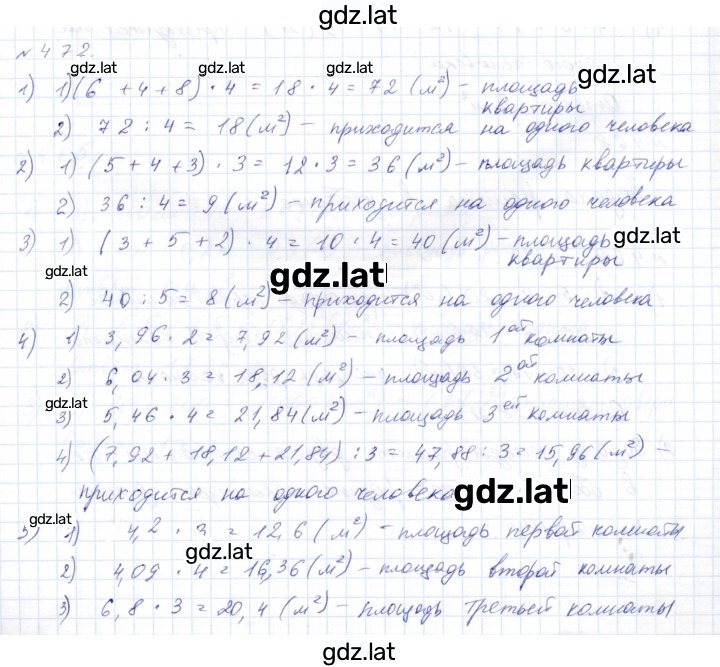 gdz.lat
№ 472.
gdz.lat gdz.lat gdz.lat
1) 1) (6 + 4 + 8) · 4 = 18 · 4 = 72 (м²) – площадь
квартиры
2) 72 : 4 = 18 (м²) – приходится на одного человека
2) 1) (5 + 4 + 3) · 3 = 12 · 3 = 36 (м²) – площадь квартиры
2) 36 : 4 = 9 (м²) – приходится на одного человека
3) 1) (3 + 5 + 2) · 4 = 10 · 4 = 40 (м²) – площадь
gdz.lat
квартиры
gdz.lat gdz.lat
2) 40 : 5 = 8 (м²) – приходится на одного человека
4) 1) 3,96 · 2 = 7,92 (м²) – площадь 1ой комнаты
2) 6,04 · 3 = 18,12 (м²) – площадь 2ой комнаты
gdz.lat
3) 5,46 · 4 = 21,84 (м²) – площадь 3ей комнаты
4) (7,92 + 18,12 + 21,84) : 3 = 47,88 : 3 = 15,96 (м²) –
приходится на одного человека
gdz.lat
5) 1) 4,2 · 3 = 12,6 (м²) – площадь первой комнаты
gdz.lat
2) 4,09 · 4 = 16,36 (м²) – площадь второй комнаты
3) 6,8 · 3 = 20,4 (м²) – площадь третьей комнаты
gdz.lat